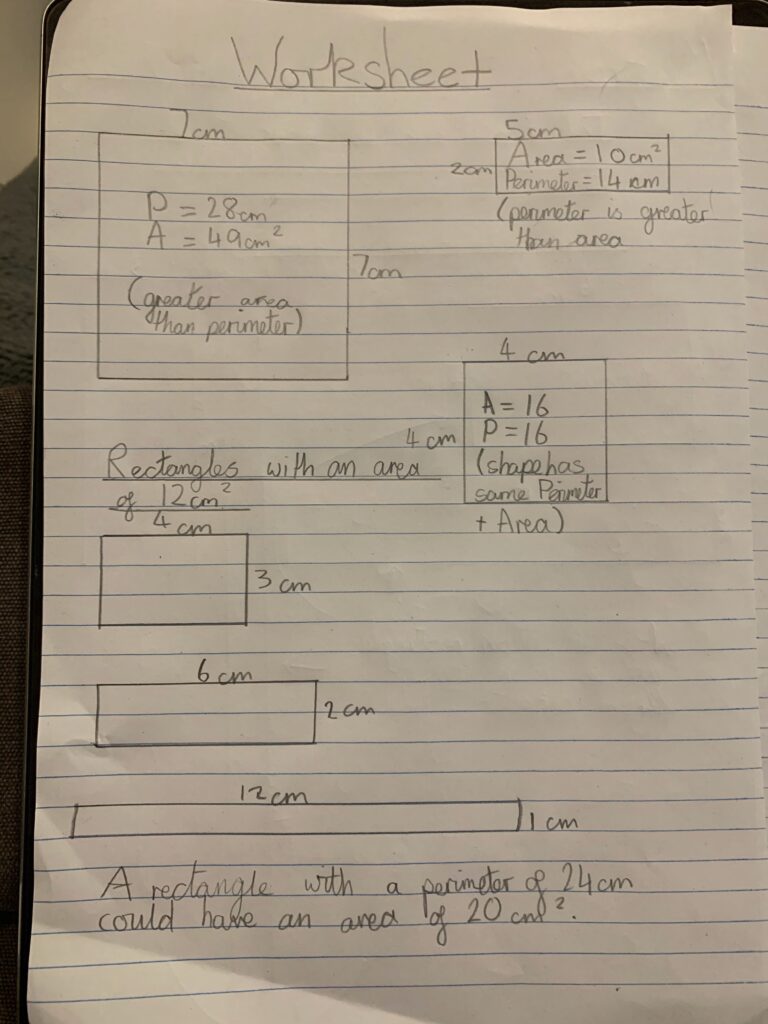 Worksheet
7cm
P = 28cm
A = 49cm²
7cm
(greater area
than perimeter)
5cm
2cm
Area = 10cm²
Perimeter = 14cm
(perimeter is greater
than area
4 cm
4 cm
A = 16
P = 16
(shape has
same Perimeter
+ Area)
Rectangles with an area
of 12cm²
4 cm
3 cm
6 cm
2 cm
12 cm
1 cm
A rectangle with a perimeter of 24cm
could have an area of 20 cm².